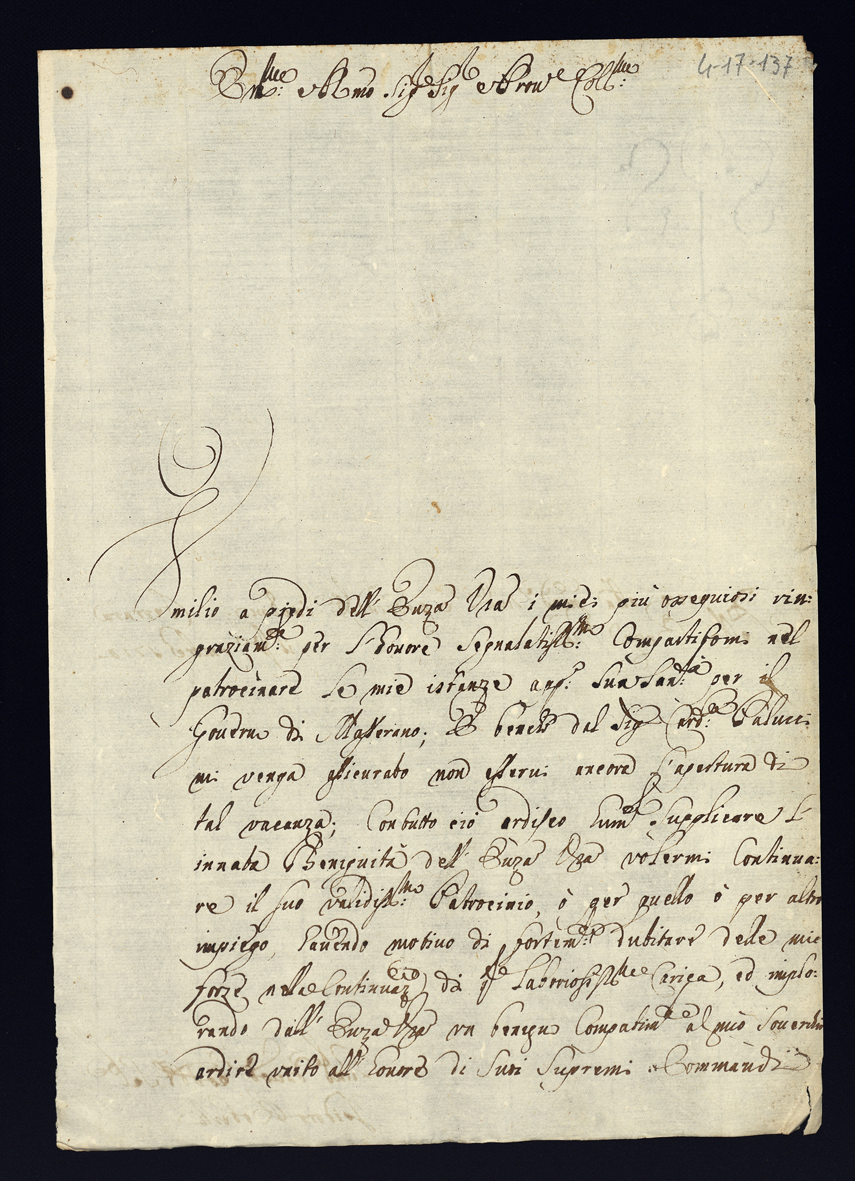 4-17-137
Em.me e R.mo Sig.re Sig.r e Pron.e Col.mo
Umilio a piedi dell' Em̃za Vra i miei più ossequiosi rin:
graziam.ti per l'honore segnalatiss.mo compartitomi nel
patrocinare le mie istanze app.o Sua San.tà per il
Governo di Masserano; E benche dal Sig.r Card.e Paluci
mi venga assicurato non esservi ancora l'apertura di
tal vacanza; Contutto ciò ardisco hum.te supplicare l'
innata Benignità dell' Em̃za Vra volermi Continua:
re il suo validiss.mo Patrocinio, ò per quello ò per altro
impiego, havendo motivo di fortem.te dubitare delle mie
forze nella Continuaz.e di q.sta laboriosiss.ma Carica, ed implo:
rando dall' Em̃za Vra un benigno Compatim.to al mio soverchio
ardire unito all' honore di suoi supremi Commandi